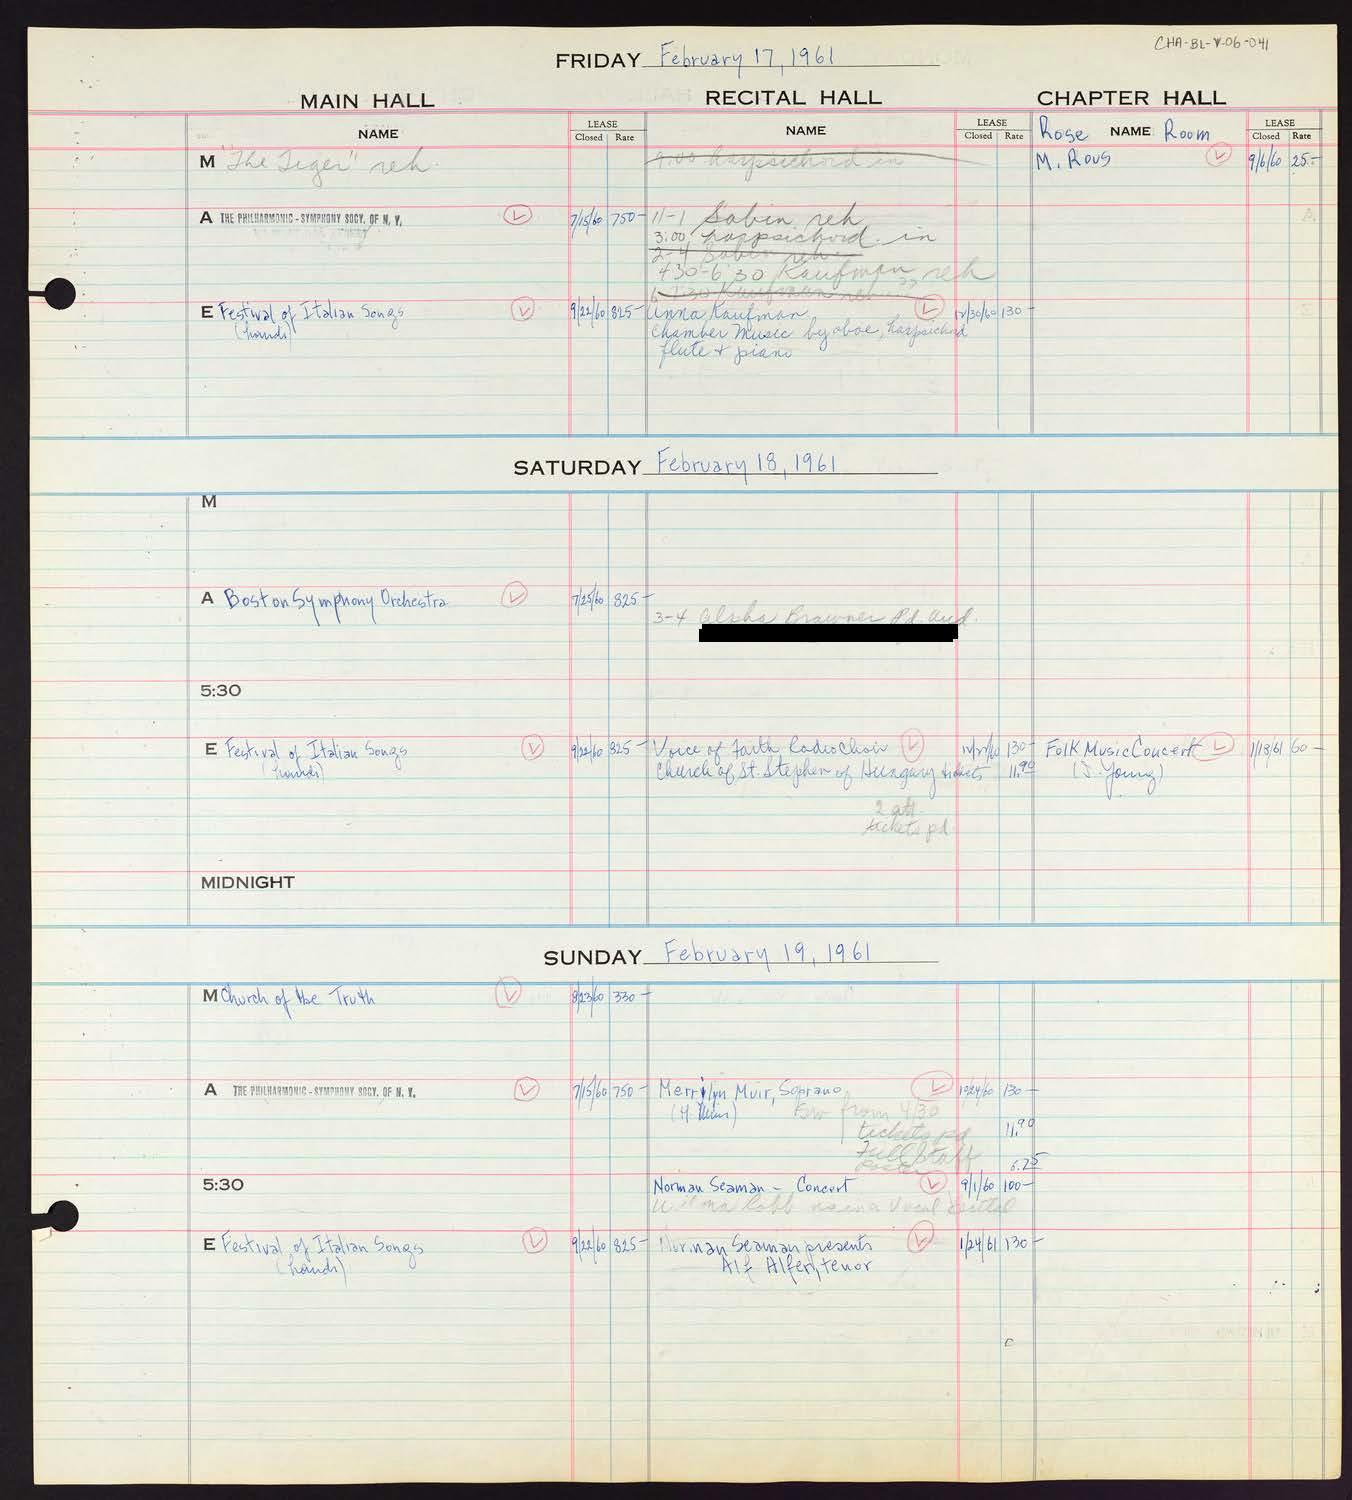 CHA-BL-V-06-041
FRIDAY February 17, 1961
MAIN HALL
RECITAL HALL
CHAPTER HALL
NAME
LEASE
Closed Rate
NAME
LEASE
Closed Rate
Rose NAME Room
LEASE
Closed Rate
M "The Tiger" reh
9:00 harpsichord in
M. Rous 9/6/60 25.-
A THE PHILHARMONIC-SYMPHONY SOCY. OF N. Y. 7/15/60 750-
11-1 Sabin reh
3:00 harpsichord in
2-4 Sabin reh
4:30-6:30 Kaufman reh
Kaufman reh
E Festival of Italian Songs 9/22/60 825-
Anna Kaufman 12/30/60 130-
Chamber Music by oboe, harpsichord
flute + piano
SATURDAY February 18, 1961
M
A Boston Symphony Orchestra 7/25/60 825-
3-4 Alpha Brawner Pd. Aud.
5:30
E Festival of Italian Songs 9/22/60 825-
Voice of Faith Radio Choir 130-
Church of St. Stephen of Hungary tickets 11.90
2 att.
tickets pd
Folk Music Concert 1/13/61 60-
(J. Young)
MIDNIGHT
SUNDAY February 19, 1961
M Church of the Truth 8/23/60 330-
A THE PHILHARMONIC-SYMPHONY SOCY. OF N. Y. 7/15/60 750-
Merrilyn Muir, Soprano 10/24/60 130-
from 4/30
tickets pd 11.90
Full Staff
poster 6.25
5:30
Norman Seaman - Concert 9/1/60 100-
Wilma Vocal Recital
E Festival of Italian Songs 9/22/60 825-
Norman Seaman presents 1/24/61 130-
Alf Alfer, tenor